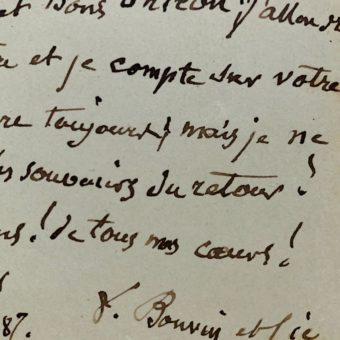 et bons
et je compte sur votre
toujours; mais je ne
souvenirs du retour!
! de tous mes cœurs!
87. Bonvin et Cie